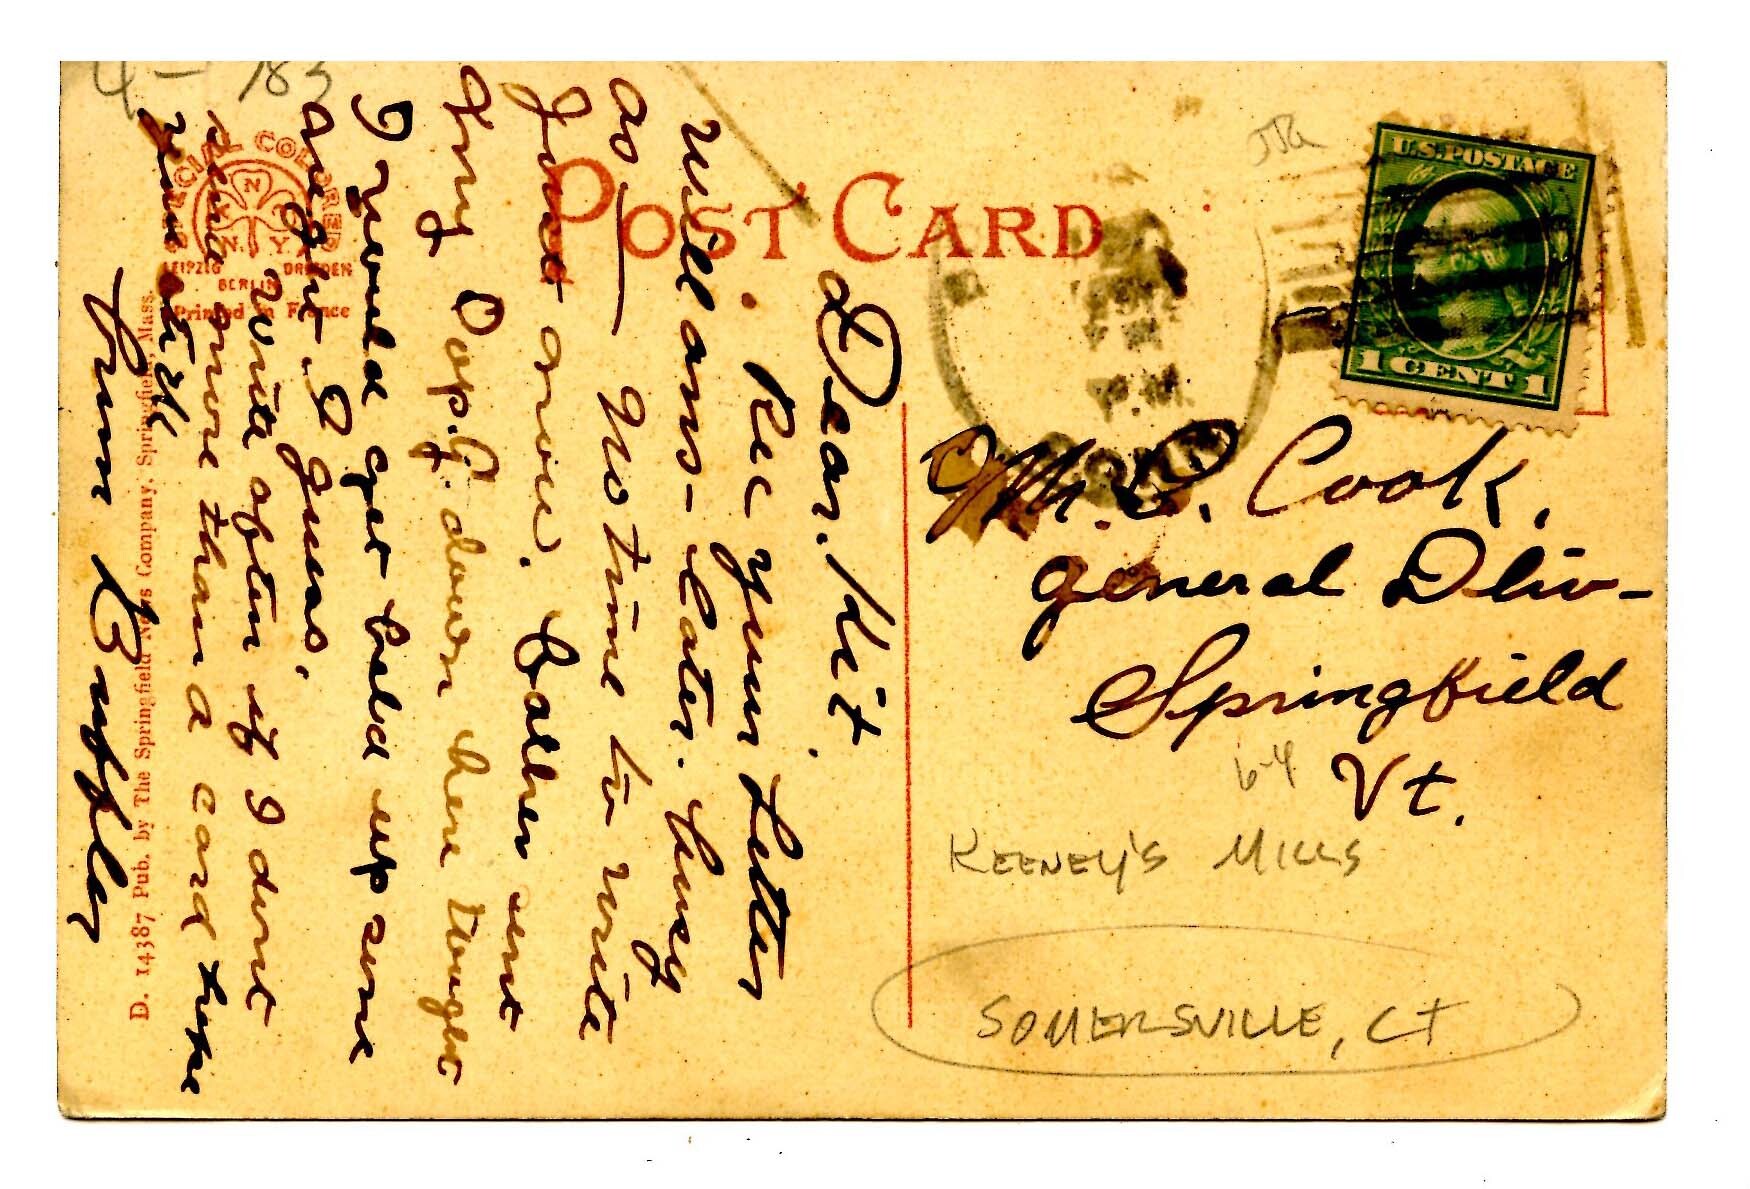 4-183
SPECIAL COLORED
N Y N.Y.
LEIPZIG DRESDEN
BERLIN
Printed in France
POST CARD
U.S. POSTAGE
1 CENT 1
Dear. Kit.
Rec your Letter
Will ans- later. busy
as no time to write
Just now. Rather sent
Dop. G. down here tought
I would get held up some
alright I guess.
Write often if I dont
send more than a card
D. 14387 Pub. by The Springfield News Company, Springfield, Mass.
M. D. Cook,
general Deliv-
Springfield
Vt.
64
KEENEY'S MILLS
SOMERSVILLE, CT